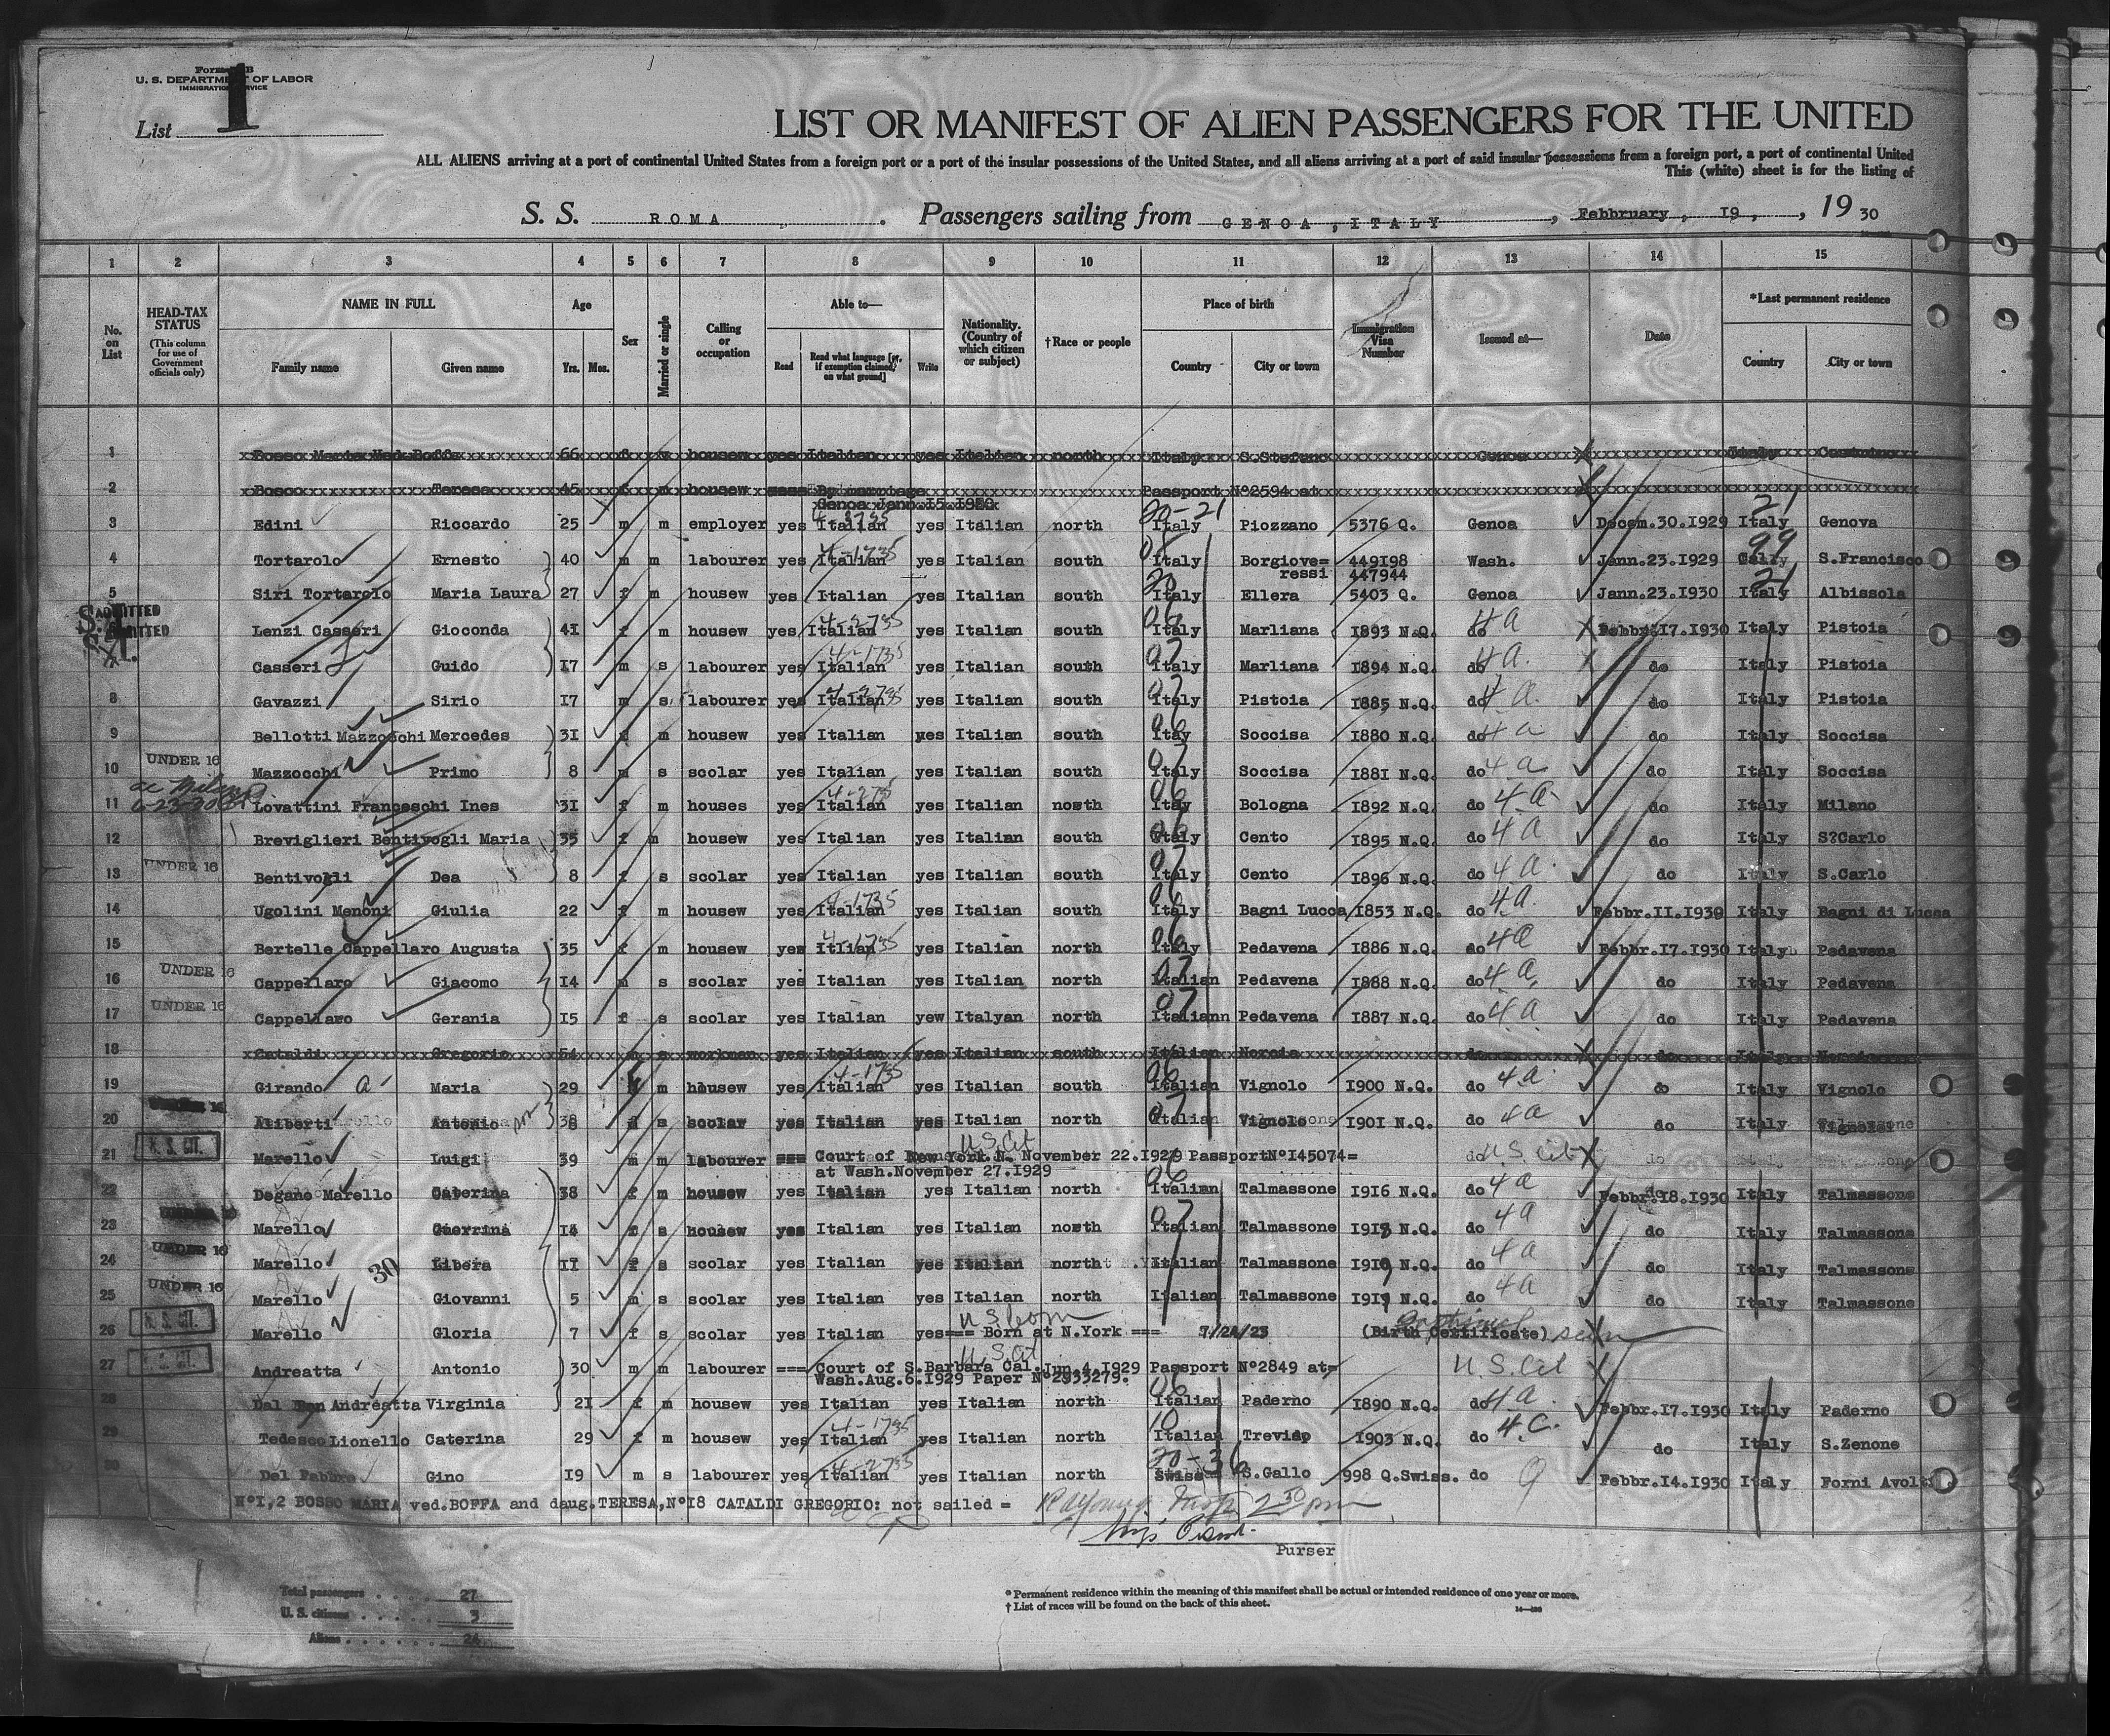 Form B
U. S. DEPARTMENT OF LABOR
IMMIGRATION SERVICE
List 1
LIST OR MANIFEST OF ALIEN PASSENGERS FOR THE UNITED
ALL ALIENS arriving at a port of continental United States from a foreign port or a port of the insular possessions of the United States, and all aliens arriving at a port of said insular possessions from a foreign port, a port of continental United
This (white) sheet is for the listing of
S. S. ROMA . Passengers sailing from GENOA , ITALY , Febbruary , 19 , 19 30
1 2 3 4 5 6 7 8 9 10 11 12 13 14 15
No. on List
HEAD-TAX STATUS (This column for use of Government officials only)
NAME IN FULL Family name Given name
Age Yrs. Mos.
Sex
Married or single
Calling or occupation
Able to— Read Read what language [or, if exemption claimed, on what ground] Write
Nationality. (Country of which citizen or subject)
†Race or people
Place of birth Country City or town
Immigration Visa Number
Issued at—
Date
*Last permanent residence Country City or town
1 Bosso Maria Ved.Boffa 66 f v housew yes Italian yes Italian north Italy S.Stefano Genoa Italy
2 Bosco Teresa 45 f m housew By marriage Passport Nº2594 at
Genoa
3 Edini Riccardo 25 m m employer yes Italian yes Italian north 20-21 Italy Piozzano 5376 Q. Genoa Decem.30.1929 21 Italy Genova
4 Tortarolo Ernesto 40 m m labourer yes 4-1735 Italian yes Italian south Italy Borgiove= 449198 Wash. Jann.23.1929 99 S.Francisco
ressi 447944
5 Siri Tortarolo Maria Laura 27 f m housew yes Italian yes Italian south 20 Italy Ellera 5403 Q. Genoa Jann.23.1930 21 Italy Albissola
S.I. ADMITTED
S.I. ADMITTED
Lenzi Casseri Gioconda 41 f m housew yes 4-2735 Italian yes Italian south 06 Italy Marliana 1893 N.Q. do 4a Febbr.17.1930 Italy Pistoia
Casseri Guido 17 m s labourer yes 4-1735 Italian yes Italian south 07 Italy Marliana 1894 N.Q. do 4a. do Italy Pistoia
8 Gavazzi Sirio 17 m s labourer yes 4-2735 Italian yes Italian south 07 Italy Pistoia 1885 N.Q. do 4a. do Italy Pistoia
9 Bellotti Mazzocchi Mercedes 31 f m housew yes Italian yes Italian south 06 Itay Soccisa 1880 N.Q. do 4a do Italy Soccisa
10 UNDER 16 Mazzocchi Primo 8 m s scolar yes Italian yes Italian south 07 Italy Soccisa 1881 N.Q. do 4a do Italy Soccisa
11 6-23-30 Lovattini Franceschi Ines 31 f m houses yes Italian yes Italian north 06 Itay Bologna 1892 N.Q. do 4a do Italy Milano
12 Breviglieri Bentivogli Maria 35 f m housew yes Italian yes Italian south 06 Italy Cento 1895 N.Q. do 4a do Italy S?Carlo
13 UNDER 16 Bentivogli Dea 8 f s scolar yes Italian yes Italian south 07 Italy Cento 1896 N.Q. do 4a do Italy S.Carlo
14 Ugolini Menoni Giulia 22 f m housew yes 4-1735 Italian yes Italian south 06 Italy Bagni Lucca 1853 N.Q. do 4a. Febbr.11.1930 Italy Bagni di Lucca
15 Bertelle Cappellaro Augusta 35 f m housew yes 4-1735 Itlian yes Italian north 06 Italy Pedavena 1886 N.Q. do 4a Febbr.17.1930 Italy Pedavena
16 UNDER 16 Cappellaro Giacomo 14 m s scolar yes Italian yes Italian north 07 Italian Pedavena 1888 N.Q. do 4a do Italy Pedavena
17 UNDER 16 Cappellaro Gerania 15 f s scolar yes Italian yew Italyan north 07 Italiann Pedavena 1887 N.Q. do 4a do Italy Pedavena
18 Cataldi Gregorio 54 m s workman yes Italian yes Italian south Italian Norcia do do Italy
19 Girando a Maria 29 f m housew yes 4-1735 Italian yes Italian south 06 Italian Vignolo 1900 N.Q. do 4a do Italy Vignolo
20 Aliberti Antonio 8 s scolar yes Italian yes Italian north 07 Italian Vignolo 1901 N.Q. do 4a do Italy Vignolo
21 U. S. CIT. Marello Luigi 39 m m labourer === Court of New York.N. November 22.1929 PassportNº145074= U.S. Cit
at Wash.November 27.1929
22 Degano Marello Caterina 38 f m housew yes Italian yes Italian north 06 Italian Talmassone 1916 N.Q. do 4a Febbr.18.1930 Italy Talmassone
23 Marello Guerrina 14 f s housew yes Italian yes Italian north 07 Italian Talmassone N.Q. do 4a do Italy Talmassone
24 UNDER 16 Marello Libera 11 f s scolar yes Italian yes Italian north Italian Talmassone N.Q. do 4a do Italy Talmassone
25 UNDER 16 Marello 30 Giovanni 5 m s scolar yes Italian yes Italian north Italian Talmassone 1919 N.Q. do 4a do Italy Talmassone
26 U. S. CIT. Marello Gloria 7 f s scolar yes Italian yes=== U.S. born Born at N.York === 7/24/23 (Birth Certificate) seen
27 U. S. CIT. Andreatta Antonio 30 m m labourer === Court of S.Barbara Cal.Jun.4.1929 Passport Nº2849 at= U.S. Cit
Wash.Aug.6.1929 Paper Nº2933279.
28 Dal Andreatta Virginia 21 f m housew yes Italian yes Italian north 06 Italian Paderno 1890 N.Q. do 4a Febbr.17.1930 Italy Paderno
29 Tedesco Lionello Caterina 29 f m housew yes 4-1735 Italian yes Italian north 10 Italian 1903 N.Q. do 4.C. do Italy S.Zenone
30 Del Fabbro Gino 19 m s labourer yes 4-2735 Italian yes Italian north 20-36 Swiss S.Gallo 998 Q.Swiss. do Q Febbr.14.1930 Italy Forni Avoltri
NºI,2 BOSSO MARIA ved.BOFFA and daug.TERESA,NºI8 CATALDI GREGORIO: not sailed = 2 30 pm
Purser
Total passengers . . . . 27
U. S. citizens . . . . . 3
Aliens . . . . . . 24
* Permanent residence within the meaning of this manifest shall be actual or intended residence of one year or more.
† List of races will be found on the back of this sheet.